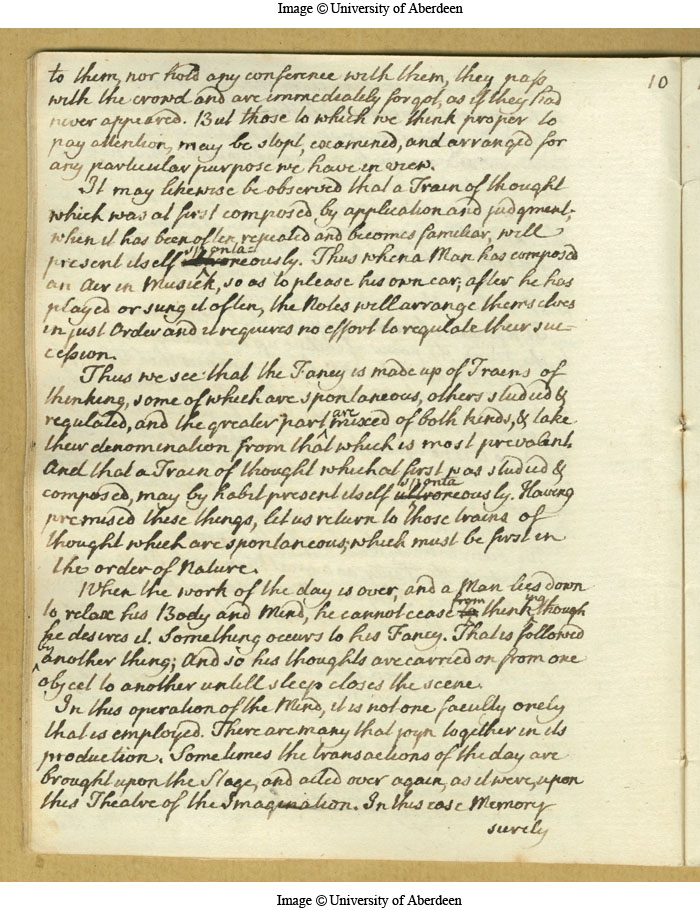 Image © University of Aberdeen
10
to them, nor hold any conference with them, they pass
with the crowd and are immediately forgot, as if they had
never appeared. But those to which we think proper to
pay attention, may be stopt, examined, and arranged for
any particular purpose we have in view.
It may likewise be observed that a Train of thought
which was at first composed by application and judgment,
when it has been often repeated and becomes familiar, will
sponta=
present itself ultroneously. Thus when a Man has composed
an Air in Musick, so as to please his own ear; after he has
played or sung it often, the Notes will arrange themselves
in just Order and it requires no effort to regulate their suc=
cession.
Thus we see that the Fancy is made up of Trains of
thinking, some of which are spontaneous, others studied &
regulated, and the greater part are mixed of both kinds, & take
their denomination from that which is most prevalent.
And that a Train of thought which at first was studied &
sponta
composed, may by habit present itself ultroneously. Having
premised these things, let us return to those trains of
thought which are spontaneous, which must be first in
the order of Nature.
When the work of the day is over, and a Man lies down
to relax his Body and Mind, he cannot cease from to thinking though
he desires it. Something occurs to his Fancy. That is followed
by another thing; And so his thoughts are carried on from one
object to another untill sleep closes the scene.
In this operation of the Mind, it is not one faculty onely
that is employed. There are many that joyn together in its
production. Sometimes the transactions of the day are
brought upon the Stage, and acted over again, as it were, upon
this Theatre of the Imagination. In this case Memory
surely
Image © University of Aberdeen